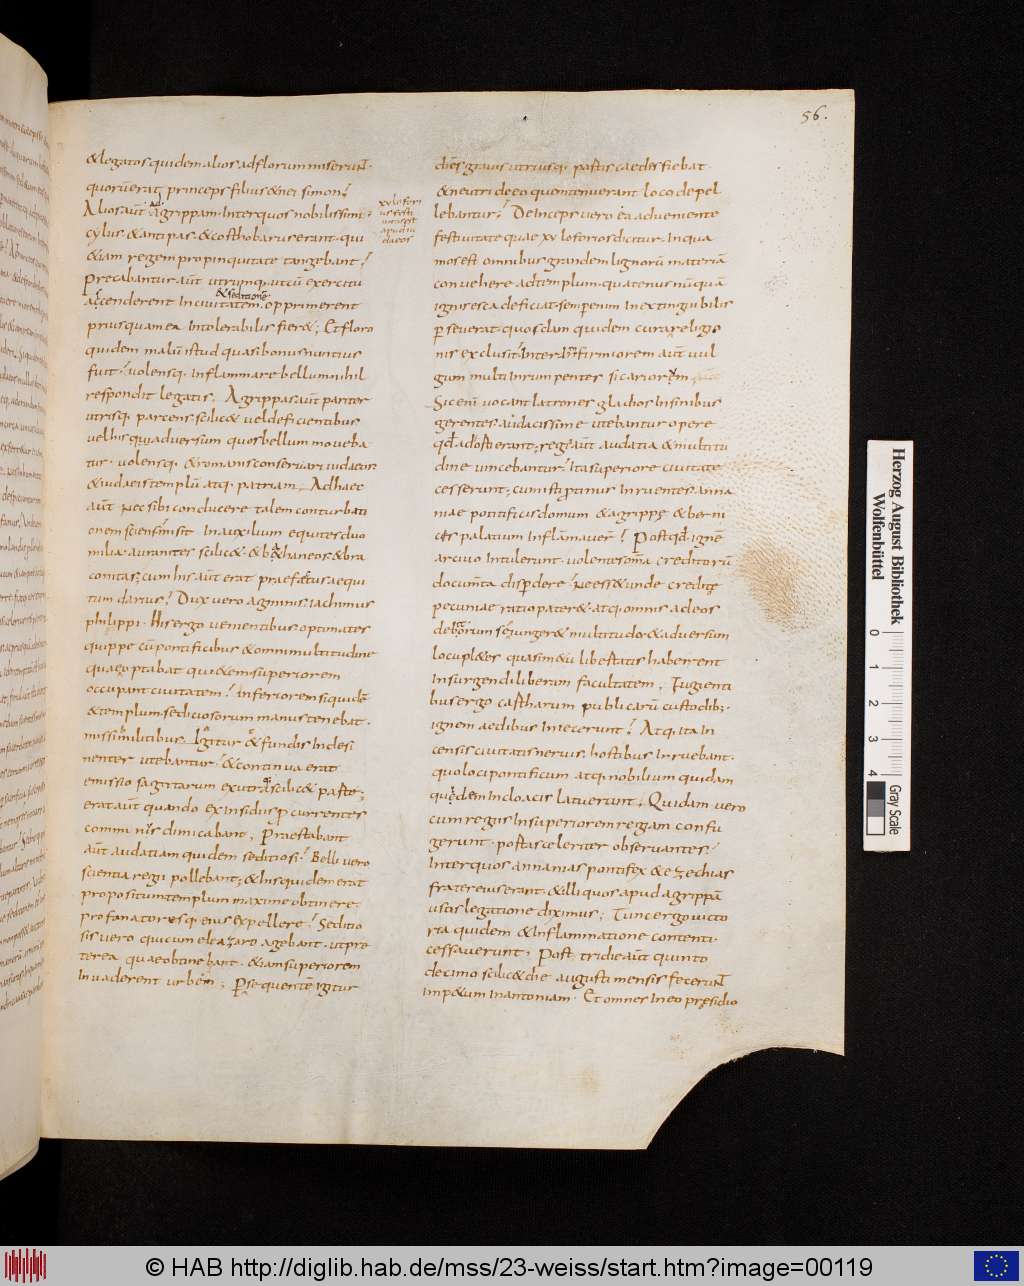 56.
& legatos quidem alios ad florum miserunt.
quorū erat princeps filius & nei simon;
Alios aūt ad agrippam. Inter quos nobilissimi.
cylus. & antipas. & costhobarus erant. qui
&iam regem propinquitate tangebant;
Precabantur aūt utrumq. ut cū exercitu
ascenderent In ciuitatem. & seditionē opprimerent
priusquam ea Intolerabilis fier&; Et floro
quidem malū istud quasi bonus nuntius
fuit. uolensq. Inflammare bellum nihil
respondit legatis. Agrippas aūt pariter
utrisq. parcens. scilic& uel deficientibus
uel his qui aduersum quos bellum moueba
tur. uolensq. & romanis conseruari iudaeos
& iudaeis templū atq. patriam. Ad haec
aūt nec sibi conducere talem conturbati
onem sciens misit In auxilium equites duo
milia. auranites scilic& & bathaneos & tra
conitas; cum his aūt erat praefectus aequi
tum darius; Dux uero agminis. Iachimus
philippi. His ergo uenientibus. optimates
quippe cū pontificibus & omni multitudine
quae optabat qui&em superiorem
occupant ciuitatem; Inferiorem siquidē
& templum. seditiosorum manus tenebat.
missilibus Igitur & fundis Indesi
nenter utebantur. & continua erat
emissio sagittarum ex utraq. scilic& parte;
erat aūt quando ex insidiis procurrentes
comminus dimicabant; Praestabant
aūt audatiam quidem seditiosi. Belli uero
scientia regii pollebant; & his quidem erat
propositum templum maxime obtinere.
profanatoresq. eius expellere; Seditio
sis uero qui cum eleazaro agebant. ut pre
terea quae obtinebant. &iam superiorem
Inuaderent urbem; Per sequentē Igitur
xy lofori
us festi
uitas est
apud iu
daeos
dies grauis utriusq. partis caedes fiebat
& neutri de eo quem tenuerant loco depel
lebantur; Deinceps uero ea adueniente
festiuitate quae xy loforios dicitur. In qua
mos est omnibus grandem lignorū materiā
conuehere ad templum. quatenus nūquā
ignis esca deficiat. semper enim Inextinguibilis
perseuerat. quos dam quidem cura relligio
nis exclusit. Inter Infirmiorem aūt uul
gum multi Inrumpentes sicariorum
Sic enī uocant latrones gladios In sinibus
gerentes audacissime utebantur opere
qd adorsi erant; regis aūt audatia & multitu
dine uincebantur. Ita superiore ciuitate
cesserunt; cum isti protinus Inruentes anna
niae pontificis domum & agrippę & berni
ces palatium Inflāmauerī; Post qd ignē
archiuo Intulerunt. uolentes omnia creditorū
documta disperdere. ne ess& unde creditę
pecuniae ratio pater&. atq. omnis ad eos
debitorum se iunger& multitudo. & aduersum
locupl&es quasi metu libertatis haberent
Insurgendi liberam facultatem; Fugienti
bus ergo castharum publicarū custodibus
ignem aedibus Iniecerunt; Atq. Ita In
censis ciuitatis neruis. hostibus Inruebant.
quo loci pontificum atq. nobilium quidam
quidem In cloacis latuerunt; Quidam uero
cum regiis In superiorem regiam confu
gerunt. portas celeriter obserantes;
Inter quos annanias pontifex & ezechias
frater eius erant. & illi quos apud agrippā
usos legatione diximus; Tunc ergo uicto
ria quidem & Inflammatione contenti.
cessauerunt; Post tridie aūt quinto
decimo scilic& die augusti mensis fecerunt
Imp&um In antoniam. Et omnes In eo pręsidio
Herzog August Bibliothek
Wolfenbüttel
0 1 2 3 4
Gray Scale
© HAB http://diglib.hab.de/mss/23-weiss/start.htm?image=00119